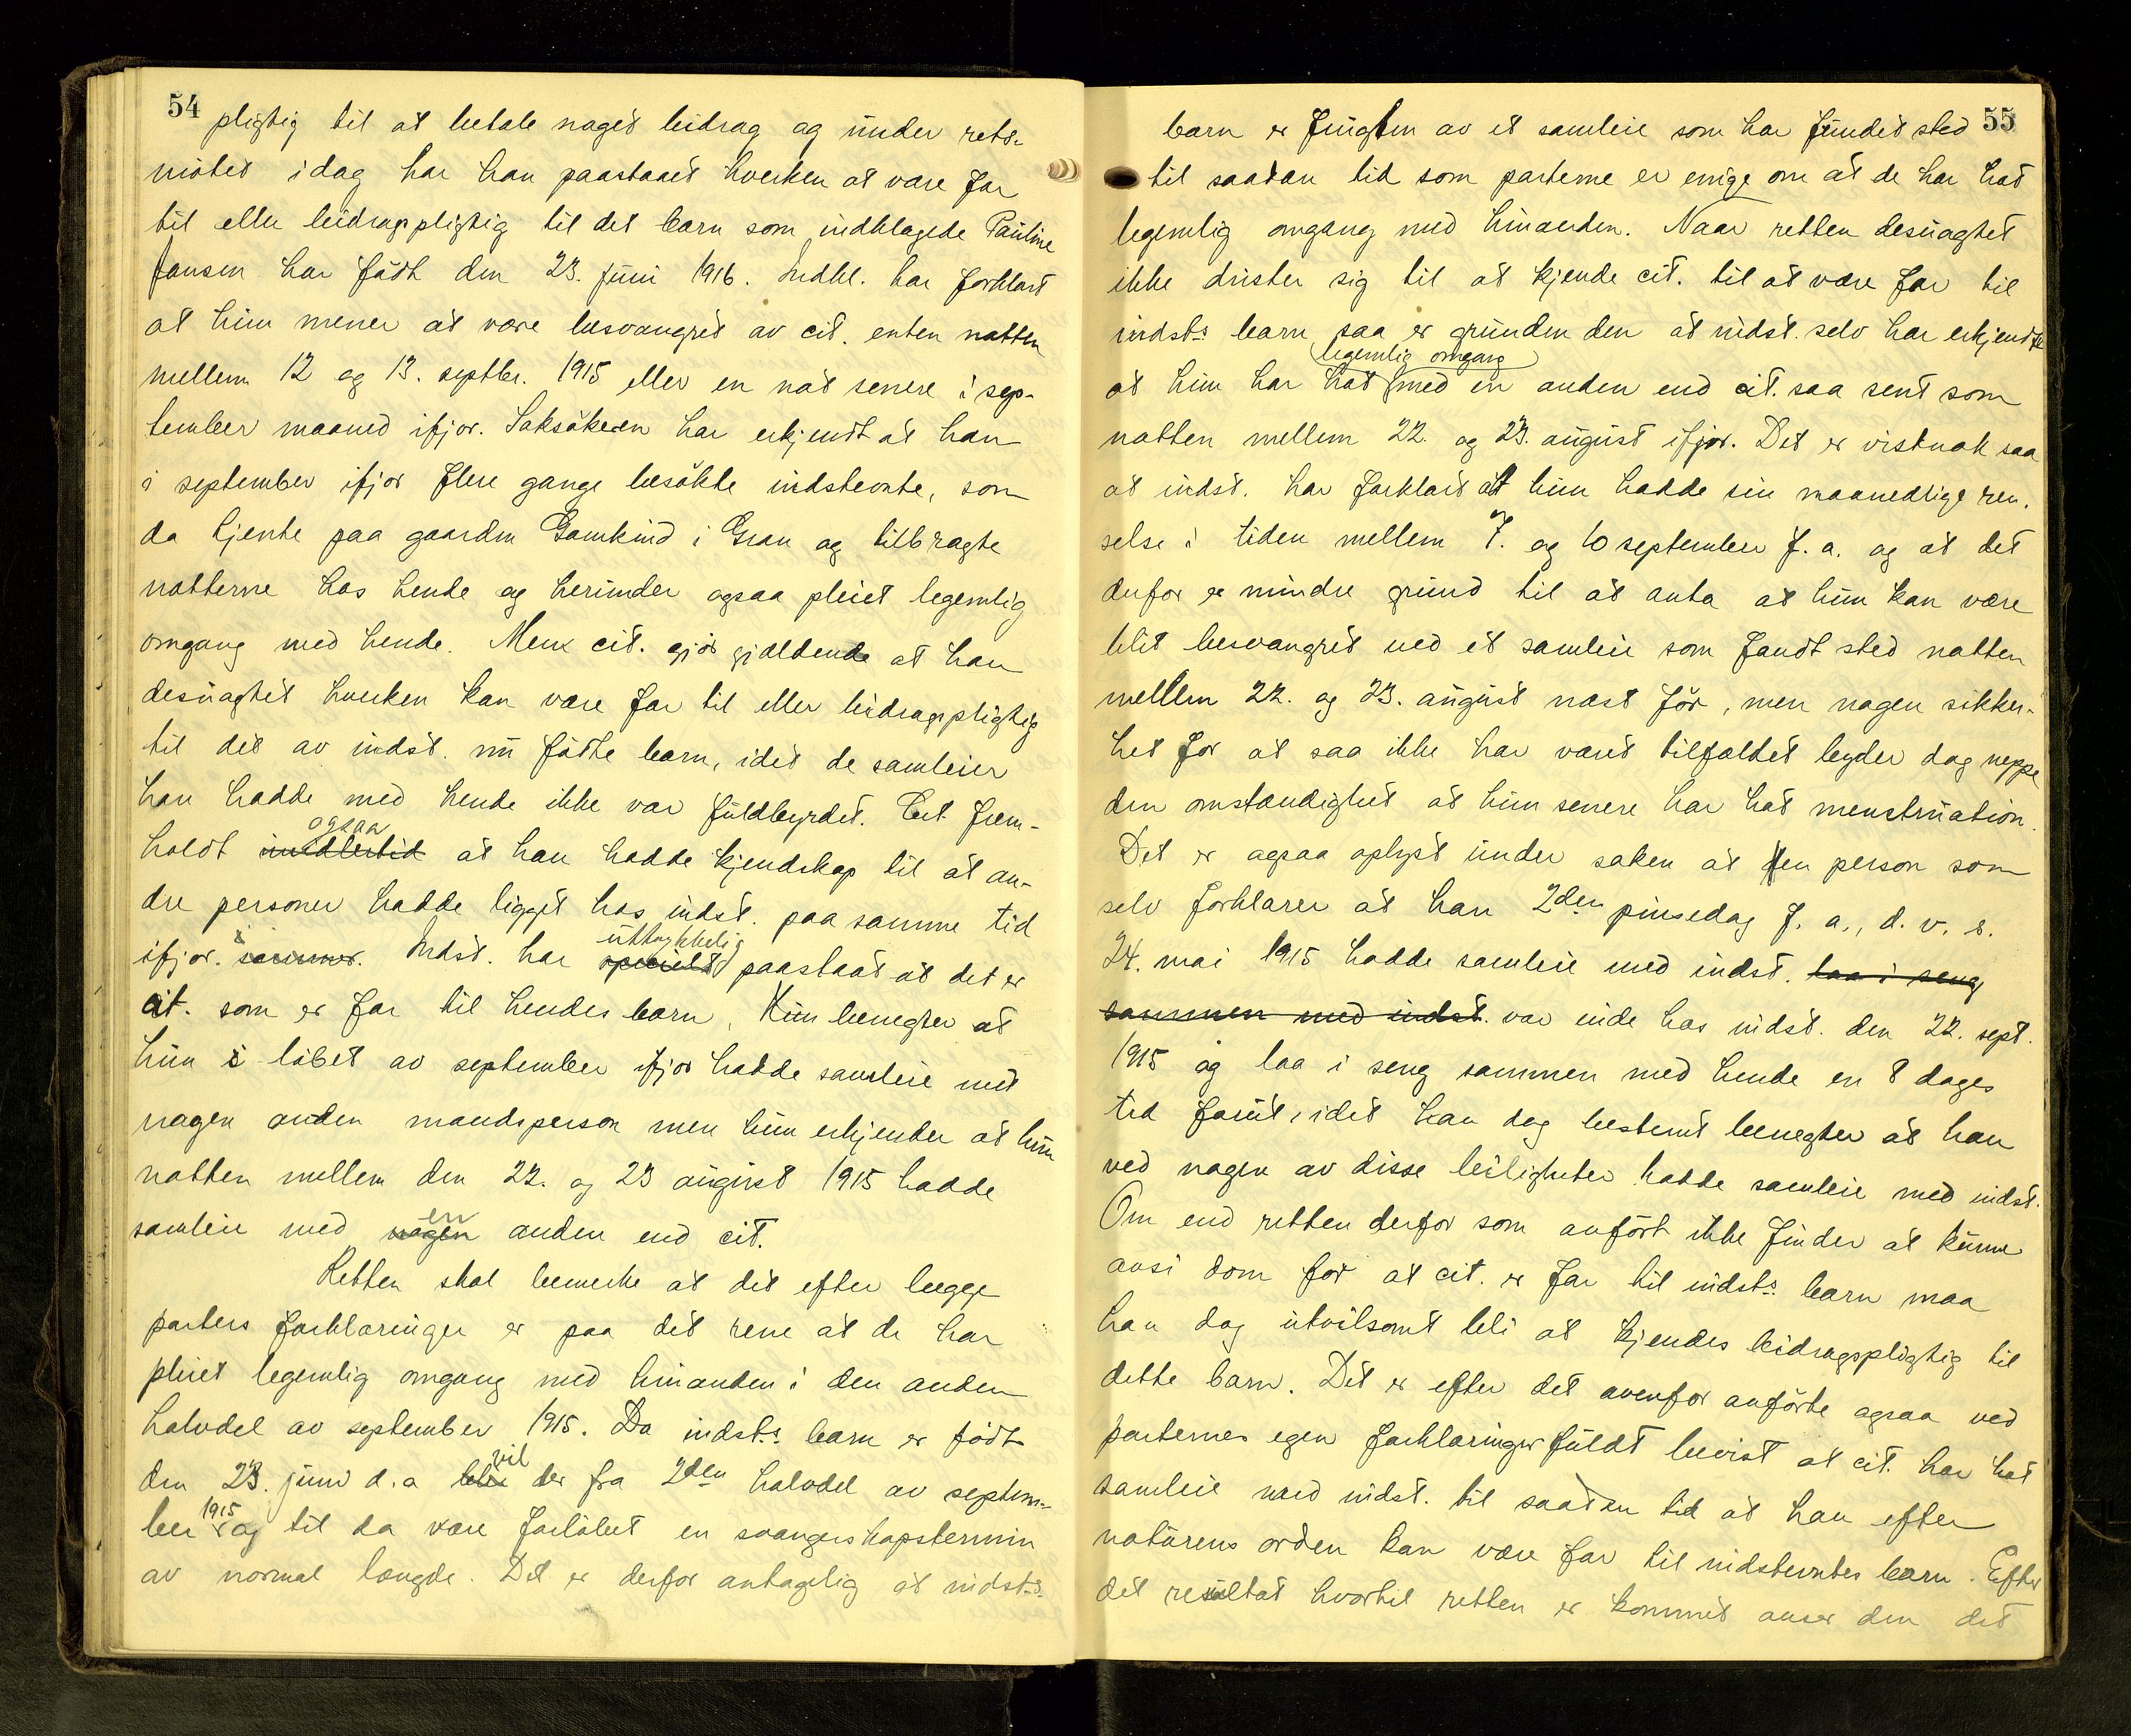 54
pligtig til at betale noget bidrag og under rets-
møtet idag har han paastaaet hverken at være far
til eller bidragspligtig til det barn som indklagede Pauline
Jansen har födt den 23. juni 1916. Indkl. har forklart
at hun mener at være besvangret av cit. enten natten
mellem 12 og 13. septbr. 1915 eller en nat senere i sep-
tember maaned ifjor. Saksökeren har erkjendt at han
i september ifjor flere gange besökte indstevnte, som
da tjente paa gaarden Gamkind i Gran og tilbragte
nætterne hos hende og herunder ogsaa pleiet legemlig
omgang med hende. Men cit. gjör gjældende at han
desuagtet hverken kan være far til eller bidragspligtig
til det av indst. nu fötte barn, idet de samleier
han hadde med hende ikke var fuldbyrdet. Cit frem-
ogsaa
holdt imidlertid at han hadde kjendskap til at an-
dre personer hadde ligget hos indst. paa samme tid
uttrykkelig
ifjor. sommer. Indst. har specielt paastaat at det er
cit. som er far til hendes barn. Hun benegter at
hun i löbet av september ifjor hadde samleie med
nogen anden mandsperson men hun erkjender at hun
natten mellem den 22. og 23 august 1915 hadde
en
samleie med nogen anden end cit.
Retten skal bemerke at det efter begge
parters forklaringer er paa det rene at de har
pleiet legemlig omgang med hinanden i den anden
halvdel av september 1915. Da indsts. barn er födt
vil
den 23. juni d.a blir der fra 2den halvdel av septem-
1915
ber og til da være forlöbet en svangerskapstermin
av normal længde. Det er derfor antagelig at indsts.
55
barn er frugten av et samleie som har fundet sted
til saadan tid som parterne er enige om at de har hat
legemlig omgang med hinanden. Naar retten desuagtet
ikke drister sig til at kjende cit. til at være far til
indsts. barn saa er grunden den at indst. selv har erkjendt
legemlig omgang
at hun har hat med en anden end cit. saa sent som
natten mellem 22. og 23. august ifjor. Det er vistnok saa
at indst. har forklart at hun hadde sin maanedlige ren-
selse i tiden mellem 7. og 10 september f. a. og at det
derfor er mindre grund til at anta at hun kan være
blit besvangret ved et samleie som fandt sted natten
mellem 22. og 23. august næst för, men nogen sikker-
het for at saa ikke har været tilfældet byder dog neppe
den omstændighet at hun senere har hat menstruation.
Det er ogsaa oplyst under saken at den person som
selv forklarer at han 2den pinsedag f. a., d. v. s.
24. mai 1915 hadde samleie med indst. laa i seng
sammen med indst. var inde hos indst. den 22. sept.
1915 og laa i seng sammen med hende en 8 dages
tid forut, idet han dog bestemt benegter at han
ved nogen av disse leiligheter hadde samleie med indst.
Om end retten derfor som anfört ikke finder at kunne
avsi dom for at cit. er far til indsts. barn maa
han dog utvilsomt bli at kjendes bidragspligtig til
dette barn. Det er efter det ovenfor anförte ogsaa ved
parternes egen forklaringer fuldt bevist at cit. har hat
samleie med indst. til saadan tid at han efter
naturens orden kan være far til indstevntes barn. Efter
det resultat hvortil retten er kommet anser den det